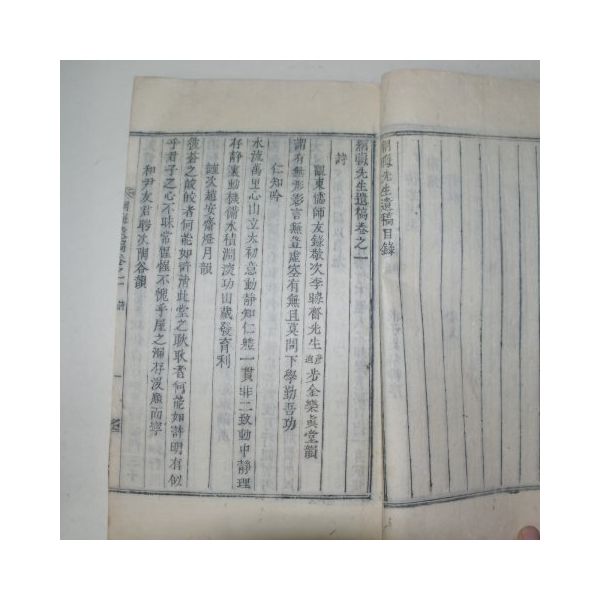 先生遺稿目錄
先生遺稿卷之一
詩
觀東儒師友錄敬次李睦齋先生步金樂眞堂韻
謂有無形影言無豈虛空有無且莫問下學勤吾功
仁知吟
水流萬里心山立太初意動靜知仁體一貫非二致動中靜理
存靜裏動機備水積淵淡功山藏發育利
謹次趙安齋燈月韻
彼蒼之皎皎者何能如齊淸此堂之耿耿者何能如許明有似
乎君子之心不昧常惺惺不愧乎屋之漏存沒順而寧
和尹友君聘次陶谷韻